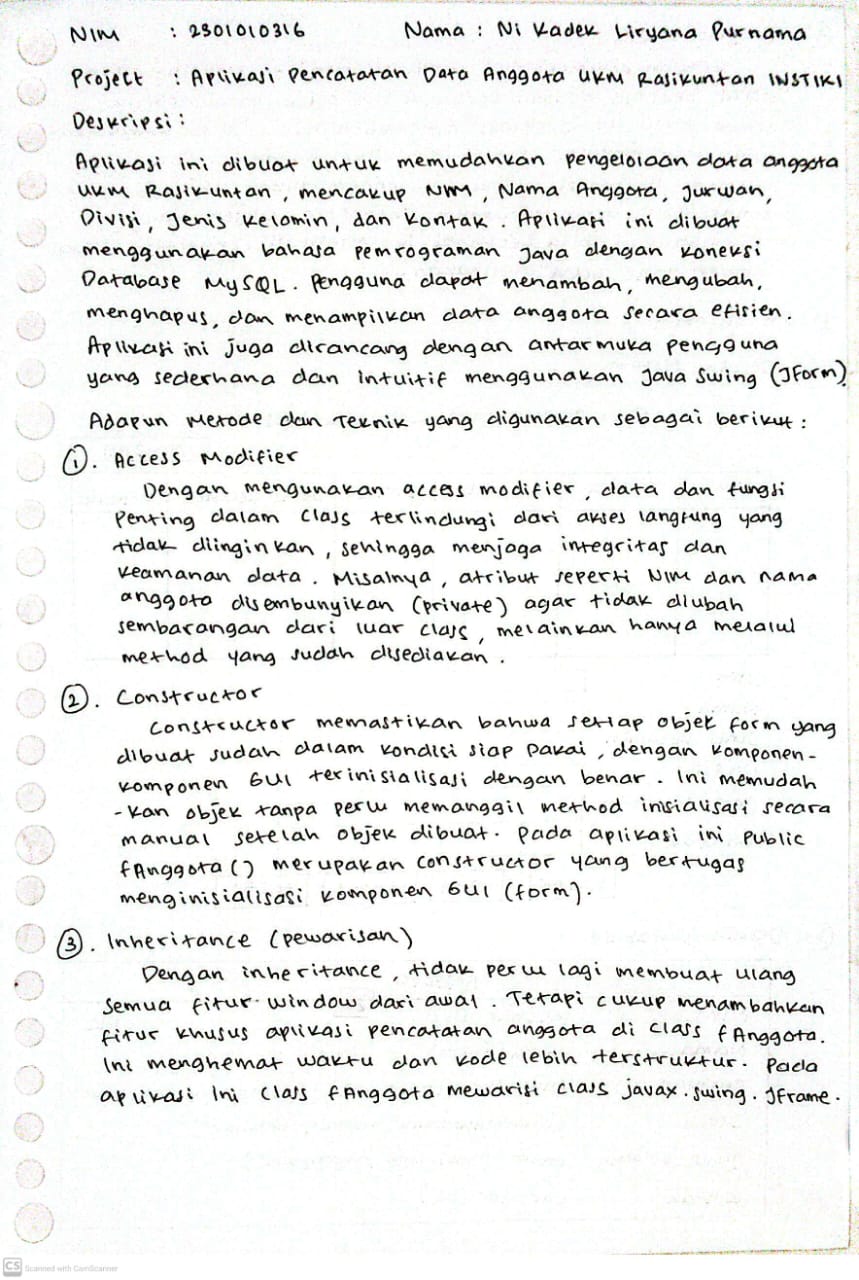 NIM : 2301010316 Nama : Ni Kadek Liryana Purnama
Project : Aplikasi Pencatatan Data Anggota UKM Rasikuntan INSTIKI
Deskripsi :
Aplikasi ini dibuat untuk memudahkan pengelolaan data anggota
UKM Rasikuntan, mencakup NIM, Nama Anggota, Jurusan,
Divisi, Jenis Kelamin, dan Kontak. Aplikasi ini dibuat
menggunakan bahasa pemrograman Java dengan koneksi
Database MySQL. Pengguna dapat menambah, mengubah,
menghapus, dan menampilkan data anggota secara efisien.
Aplikasi ini juga dirancang dengan antarmuka pengguna
yang sederhana dan intuitif menggunakan Java Swing (JForm).
Adapun Metode dan Teknik yang digunakan sebagai berikut :
①. Access Modifier
Dengan mengunakan access modifier, data dan fungsi
penting dalam class terlindungi dari akses langsung yang
tidak diinginkan, sehingga menjaga integritas dan
keamanan data. Misalnya, atribut seperti NIM dan nama
anggota disembunyikan (private) agar tidak diubah
sembarangan dari luar class, melainkan hanya melalui
method yang sudah disediakan.
②. Constructor
Constructor memastikan bahwa setiap objek form yang
dibuat sudah dalam kondisi siap pakai, dengan komponen-
komponen GUI terinisialisasi dengan benar. Ini memudah
-kan objek tanpa perlu memanggil method inisialisasi secara
manual setelah objek dibuat. Pada aplikasi ini Public
fAnggota() merupakan constructor yang bertugas
menginisialisasi komponen GUI (form).
③. Inheritance (pewarisan)
Dengan inheritance, tidak perlu lagi membuat ulang
semua fitur window dari awal. Tetapi cukup menambahkan
fitur khusus aplikasi pencatatan anggota di class fAnggota.
Ini menghemat waktu dan kode lebih terstruktur. Pada
aplikasi ini class fAnggota mewarisi class javax.swing.JFrame.
CS Scanned with CamScanner